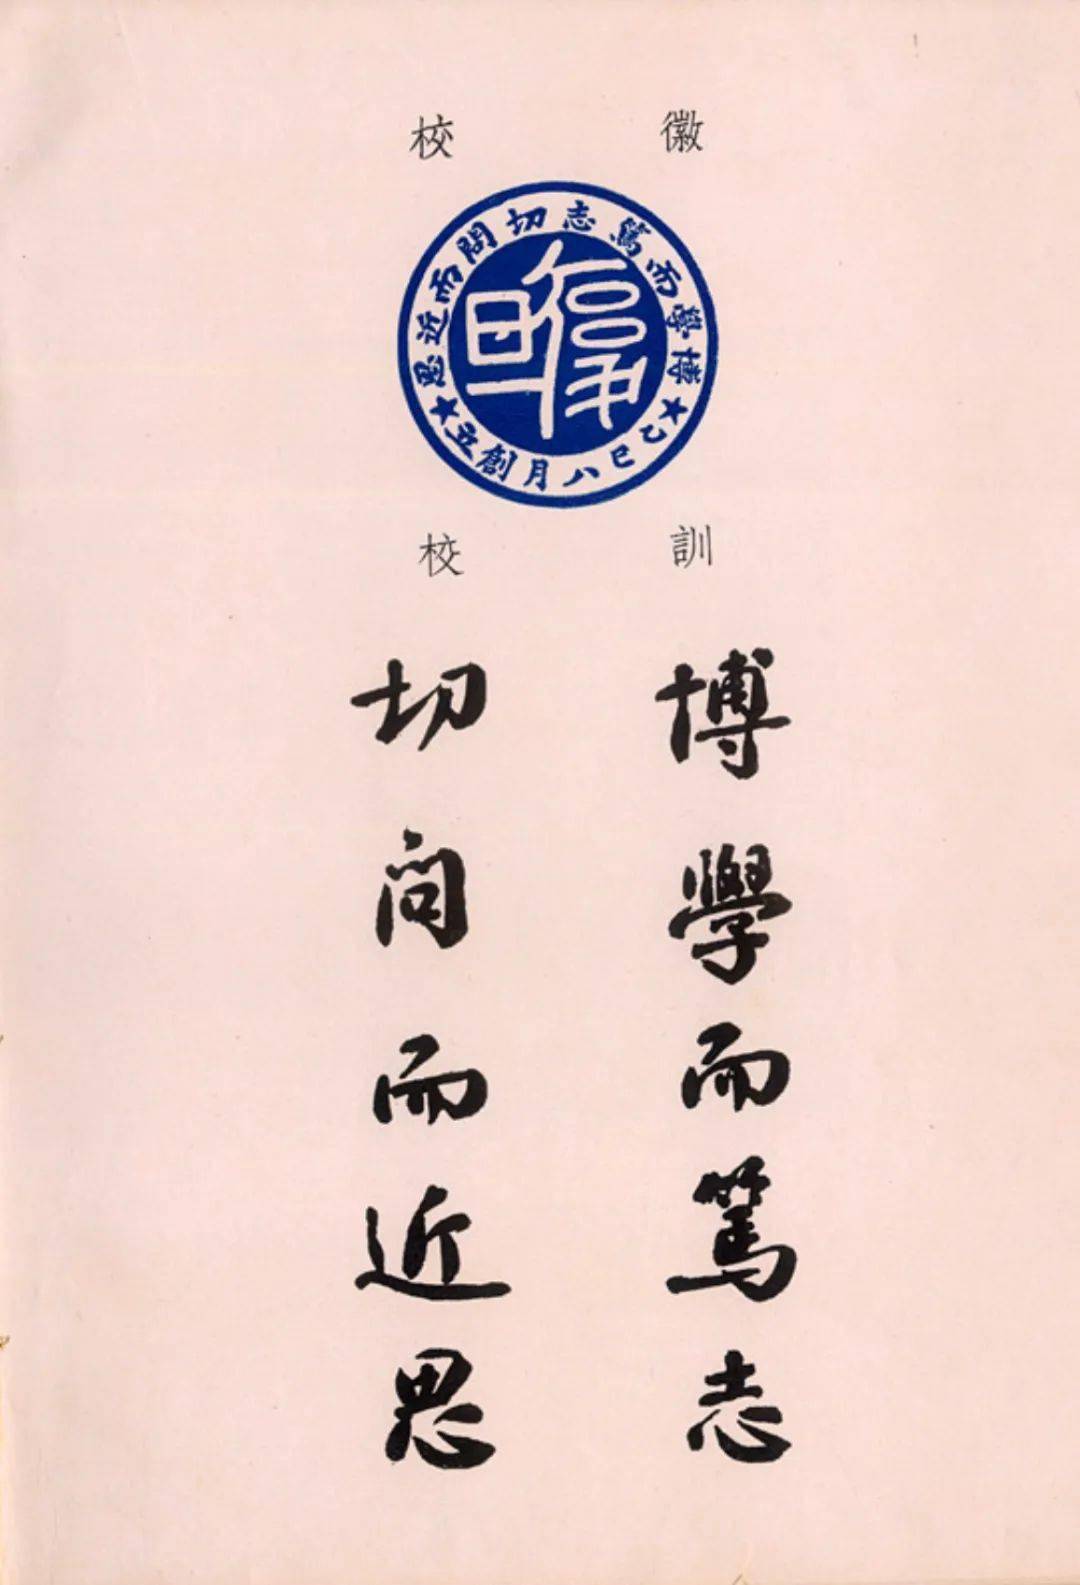 校徽
博學而篤志切問而近思
乙巳八月創立
復旦
校訓
博學而篤志
切问而近思